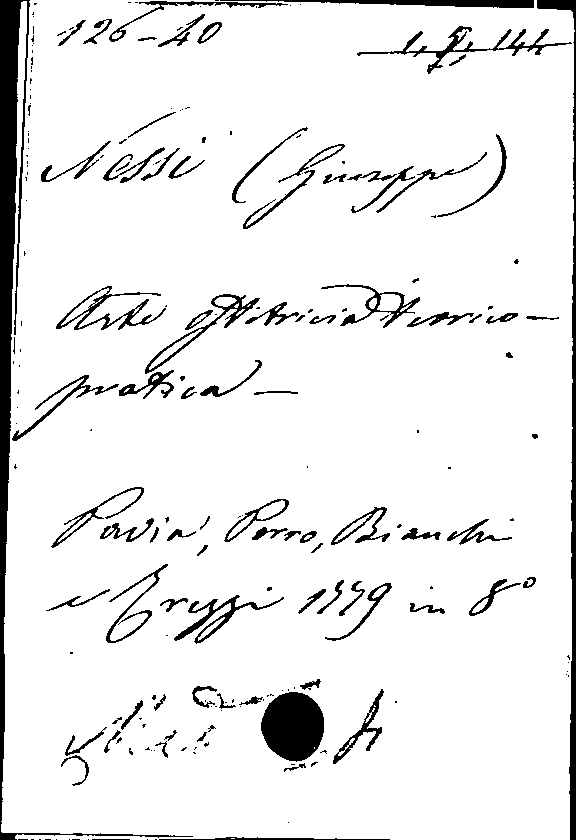 126-40
1, V, 144
Nessi (Giuseppe)
Arte Ostetricia Teorico-
pratica —
Pavia, Porro, Bianchi
e Treggi 1779 in 8°